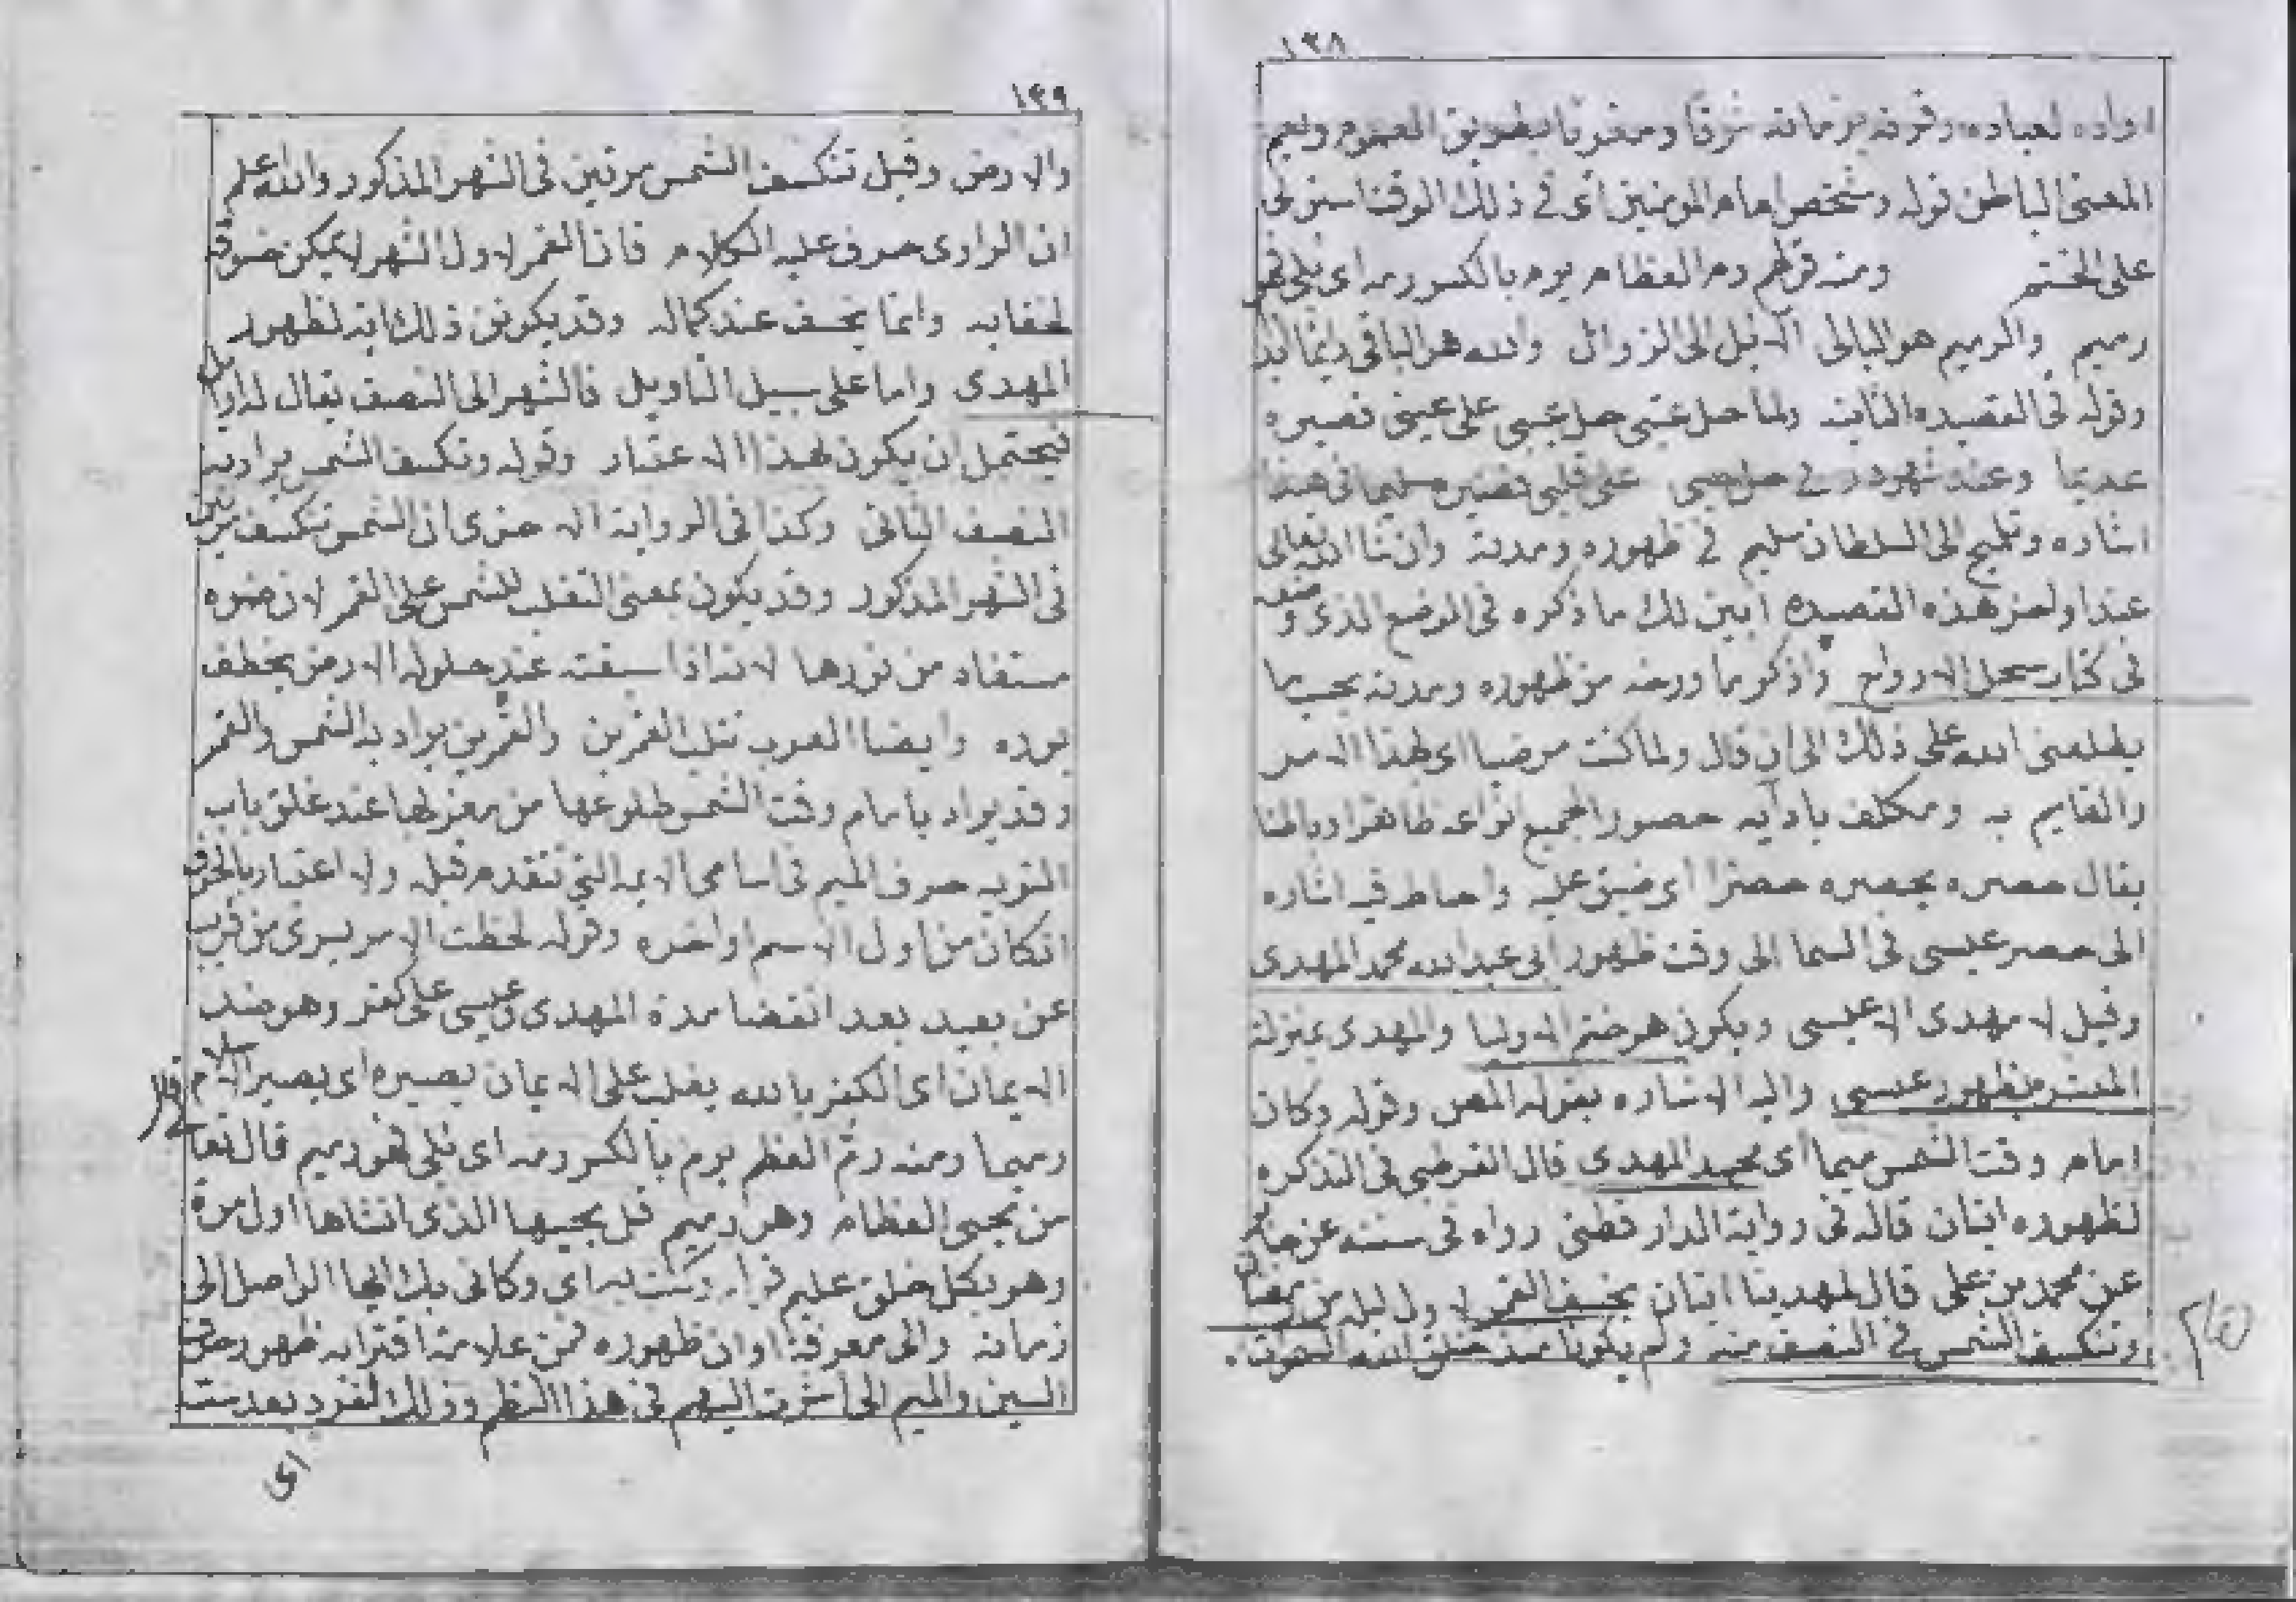 ١٣٨
لعباده وقرنه بزمانه شرقا ومغربا بطريق العموم
المعنى الباطن قوله وشخص امام المومنين اى فى ذلك الوقت
على الختم ومنه قولهم رم العظام يرم بالكسر رمه اى بلى فهو
رميم والرميم هو البالى الايل الى الزوال والله هو الباقى
وقوله فى القصيده الثانيه ولما حل عيسى على عينى
وعند شهود على قلبى
اشاره وتلميح الى السلطان سليم فى ظهوره ومدته وان شا الله تعالى
هذه القصيده ابين لك ما ذكره فى الموضع الذى
فى كتاب واذكر ما ورد منه من ظهوره ومدته بحسب ما
يطلعنى الله على ذلك الى ان قال ولما كنت مرضيا اى لهذا الامر
والقايم به ومكلف بادايه حصورا لجميع انواعه ظاهرا وباطنا
يقال حصره يحصره حصرا اى ضيق عليه واحاط فيه اشاره
الى حصر عيسى فى السما الى وقت ظهور ابى عبد الله محمد المهدى
وقيل لا مهدى الا عيسى ويكون هو ختم الاوليا والمهدى بمنزلة
المبشر بظهور عيسى واليه الاشاره بقوله وقوله وكان
امام وقت الشمس ميما اى محمد المهدى قال القرطبى فى التذكره
لظهوره ايتان قاله فى رواية الدار قطنى رواه فى سننه عن جابر
عن محمد بن على قال لمهدينا ايتان يخسف القمر لاول ليله من رمضان
وتنكسف الشمس فى النصف منه ولم يكونا منذ خلق الله السموات
١٣٩
والارض وقيل تنكسف الشمس مرتين فى الشهر المذكور والله اعلم
ان الراوى حرف عليه الكلام فان القمر لاول الشهر لا يمكن خسوفه
لخفايه وانما يخسف عند كماله وقد يكون ذلك اية لظهور
المهدى واما على سبيل التاويل فالشهر الى النصف يقال له اوايل
فيحتمل ان يكون لهذا الاعتبار وقوله وتكسف الشمس يراد به
النصف الثانى وكذا فى الرواية الاخرى ان الشمس تنكسف مرتين
فى الشهر المذكور وقد يكون بمعنى التغلب للشمس على القمر لان ضوه
مستفاد من نورها لانه اذا عند حلوله الارض يخطف
نوره وايضا العرب تغلب القمرين والقمرين يراد به الشمس والقمر
وقد يراد بامام وقت الشمس طلوعها من مغربها عند غلق باب
التوبه حرف الميم فى اسامى الايمه التى تقدم قبل ولا اعتبار بالحرف
انكان من اول الاسم او اخره وقوله لحظت الامر يسرى من قريب
عن بعيد بعد انقضا مدة المهدى وعيسى على كفر وهو ضد
الايمان اى الكفر بالله يغلب على الايمان يصيره اى يصير الاسلام
رميما ومنه رم العظم يرم بالكسر رمه اى بلى فهو رميم قال تعالى
من يحيى العظام وهى رميم قل يحييها الذى انشاها اول مرة
وهو بكل خلق عليم اى وكانى بك ايها الواصل الى
زمانه والى معرفة اوان ظهوره فمن علامة اقترابه ظهور حرف
السين والميم الى اشرت اليهم فى هذا النظم وذلك لفرد بعد ست
اى